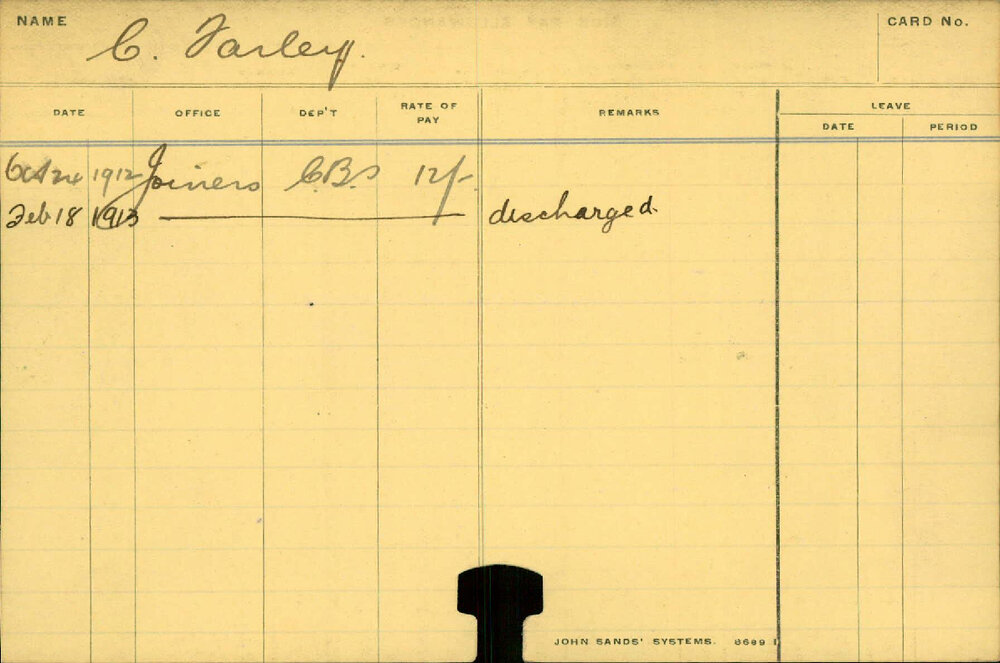 NAME C. Farley. CARD No.
DATE OFFICE DEP'T RATE OF PAY REMARKS LEAVE
DATE PERIOD
Oct 24 1912 Joiners C.B.S 12/-
Feb 18 1913 discharged.
JOHN SANDS' SYSTEMS. 8689